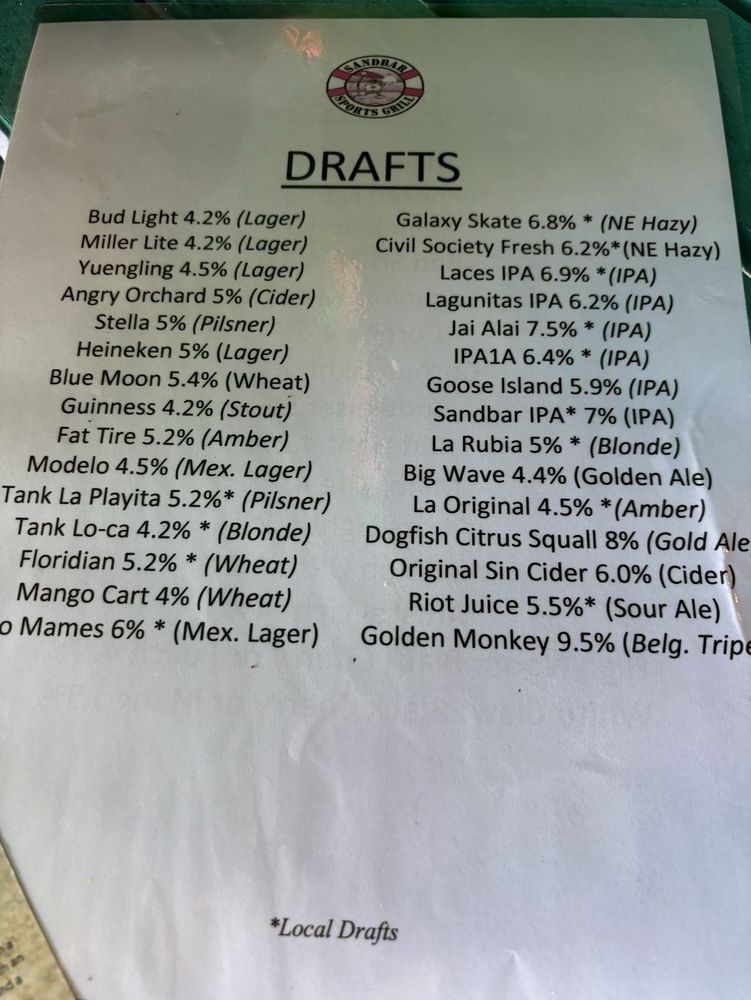 SANDBAR
SPORTS GRILL
DRAFTS
Bud Light 4.2% (Lager)
Miller Lite 4.2% (Lager)
Yuengling 4.5% (Lager)
Angry Orchard 5% (Cider)
Stella 5% (Pilsner)
Heineken 5% (Lager)
Blue Moon 5.4% (Wheat)
Guinness 4.2% (Stout)
Fat Tire 5.2% (Amber)
Modelo 4.5% (Mex. Lager)
Tank La Playita 5.2%* (Pilsner)
Tank Lo-ca 4.2% * (Blonde)
Floridian 5.2% * (Wheat)
Mango Cart 4% (Wheat)
o Mames 6% * (Mex. Lager)
Galaxy Skate 6.8% * (NE Hazy)
Civil Society Fresh 6.2%*(NE Hazy)
Laces IPA 6.9% *(IPA)
Lagunitas IPA 6.2% (IPA)
Jai Alai 7.5% * (IPA)
IPA1A 6.4% * (IPA)
Goose Island 5.9% (IPA)
Sandbar IPA* 7% (IPA)
La Rubia 5% * (Blonde)
Big Wave 4.4% (Golden Ale)
La Original 4.5% *(Amber)
Dogfish Citrus Squall 8% (Gold Ale
Original Sin Cider 6.0% (Cider)
Riot Juice 5.5%* (Sour Ale)
Golden Monkey 9.5% (Belg. Tripe
*Local Drafts